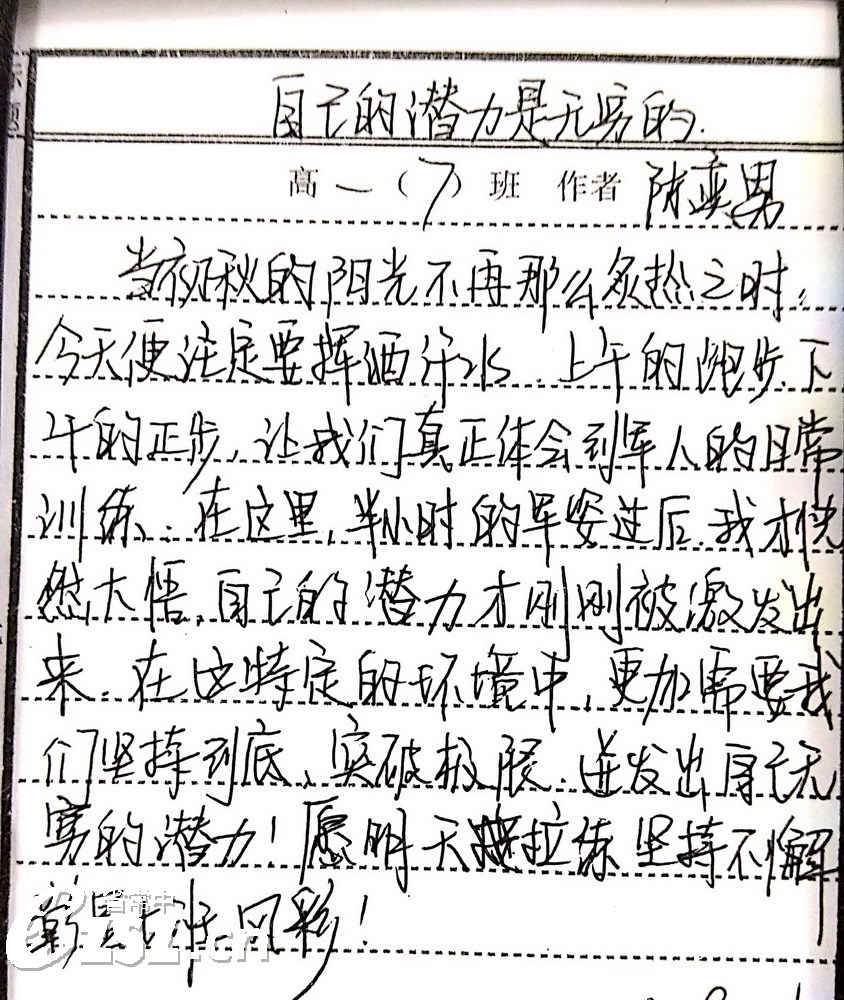 自己的潜力是无穷的.
高一(7)班 作者 陈奕男
当初秋的阳光不再那么炙热之时,
今天便注定要挥洒汗水. 上午的跑步.下
午的正步,让我们真正体会到军人的日常
训练.在这里,半小时的军姿过后.我才恍
然大悟,自己的潜力才刚刚被激发出
来.在这特定的环境中,更加需要我
们坚持到底、突破极限.迸发出自己无
穷的潜力!愿明天拉练坚持不懈
彰显七班风彩!
省常中